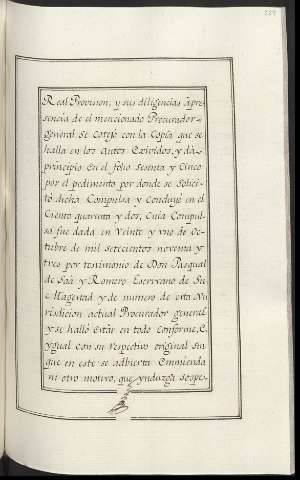 Real Provision, y sus diligencias â pre-
sencia de el mencionado Procurador
general se Cotejó con la Copia que se
halla en los autos Exividos, y dá
principio en el folio sesenta y Cinco
por el pedimento por donde se solici-
tó dicha Compulsa y Concluye en el
Ciento quarenta y dos, Cuia Compul-
sa fue dada en Veinte y vno de Oc-
tubre de mil setecientos noventa y
tres por testimonio de Don Pasqual
de Saá y Romero Escrivano de Su
Magestad y de numero de esta Ju
risdicion actual Procurador general
y se halló estár en todo Conforme, E
ygual con su respectivo original sin
que en este se advierta Emmienda
ni otro motivo, que ynduzga sospe-